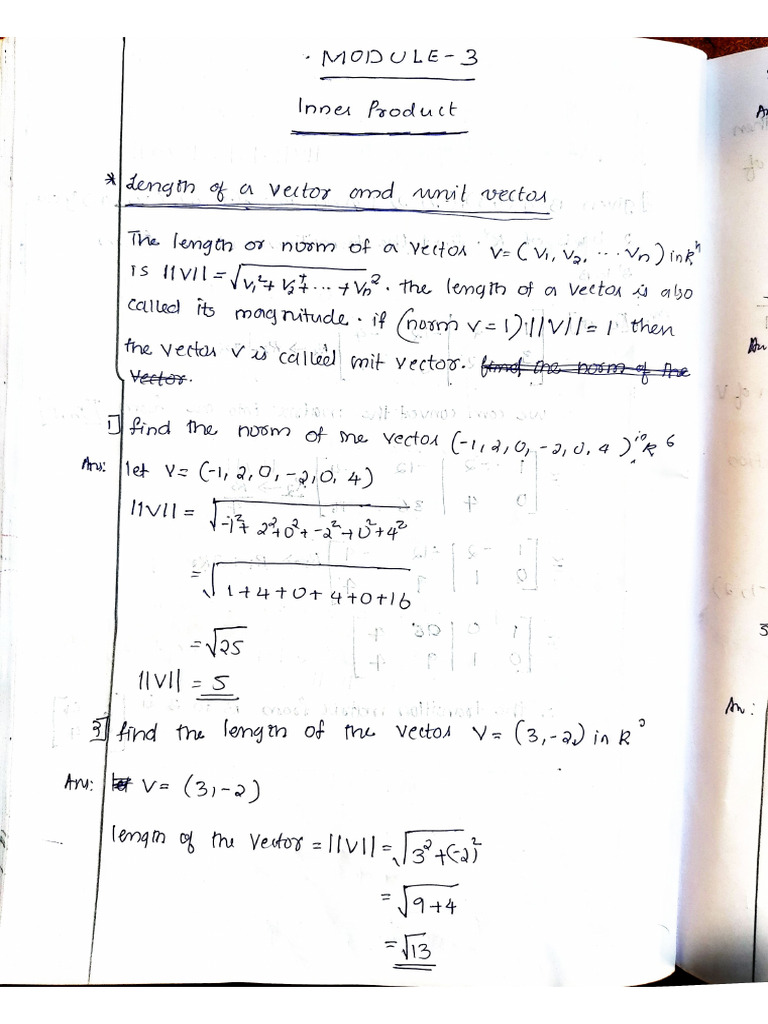 MODULE-3
Inner Product
* Length of a vector and unit vector
The length or norm of a vector v=(v₁, v₂, ... vn) in Rⁿ
is ||V|| = √v₁²+v₂²+...+vn². the length of a vector is also
called its magnitude. if (norm v=1) ||V||=1 then
the vector v is called unit vector. find the norm of the
vector.
1] find the norm of the vector (-1,2,0,-2,0,4) in R⁶
Ans: let v= (-1,2,0,-2,0,4)
||V|| = √-1²+2²+0²+-2²+0²+4²
=√1+4+0+4+0+16
=√25
||V|| = 5
find the length of the vector v= (3,-2) in R
Ans: let v= (3,-2)
length of the vector = ||V|| = √3²+(-2)²
=√9+4
=√13
An
An
3
An: